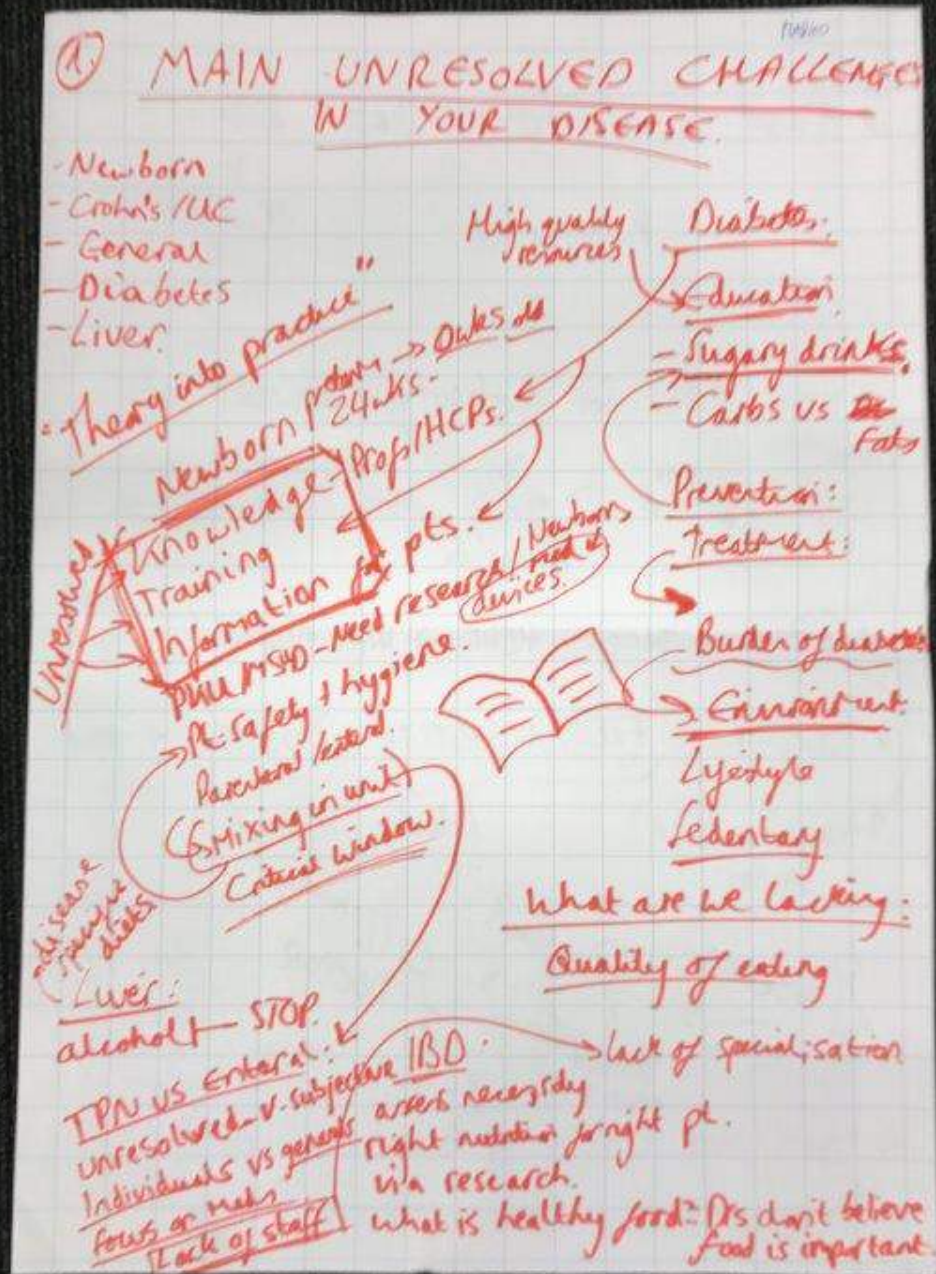 1.
MAIN UNRESOLVED CHALLENGES
IN YOUR DISEASE.
- Newborn
- Crohn's / UC
- General
- Diabetes
- Liver.
"Theory into practice"
Newborn / → 0wks old
24wks.
Knowledge - Profs/HCPs.
Training
Information for pts.
Unresolved
PKU / MSUD - Need research / Newborns
devices.
Pt. safety + hygiene.
Parenteral / enteral.
(Mixing in unit)
Critical window.
disease
diets
Liver:
alcohol - STOP.
TPN vs Enteral:
unresolved - v. subjective
Individuals vs
focus on
Lack of staff
High quality
resources
Diabetes:
Education
- Sugary drinks.
- Carbs vs
Fats
Prevention:
Treatment:
Burden of diabetes
Environment.
Lifestyle
Sedentary
What are we lacking:
Quality of eating
IBD.
lack of specialisation
assess necessity
right nutrition for right pt.
via research.
What is healthy food? Drs don't believe
food is important